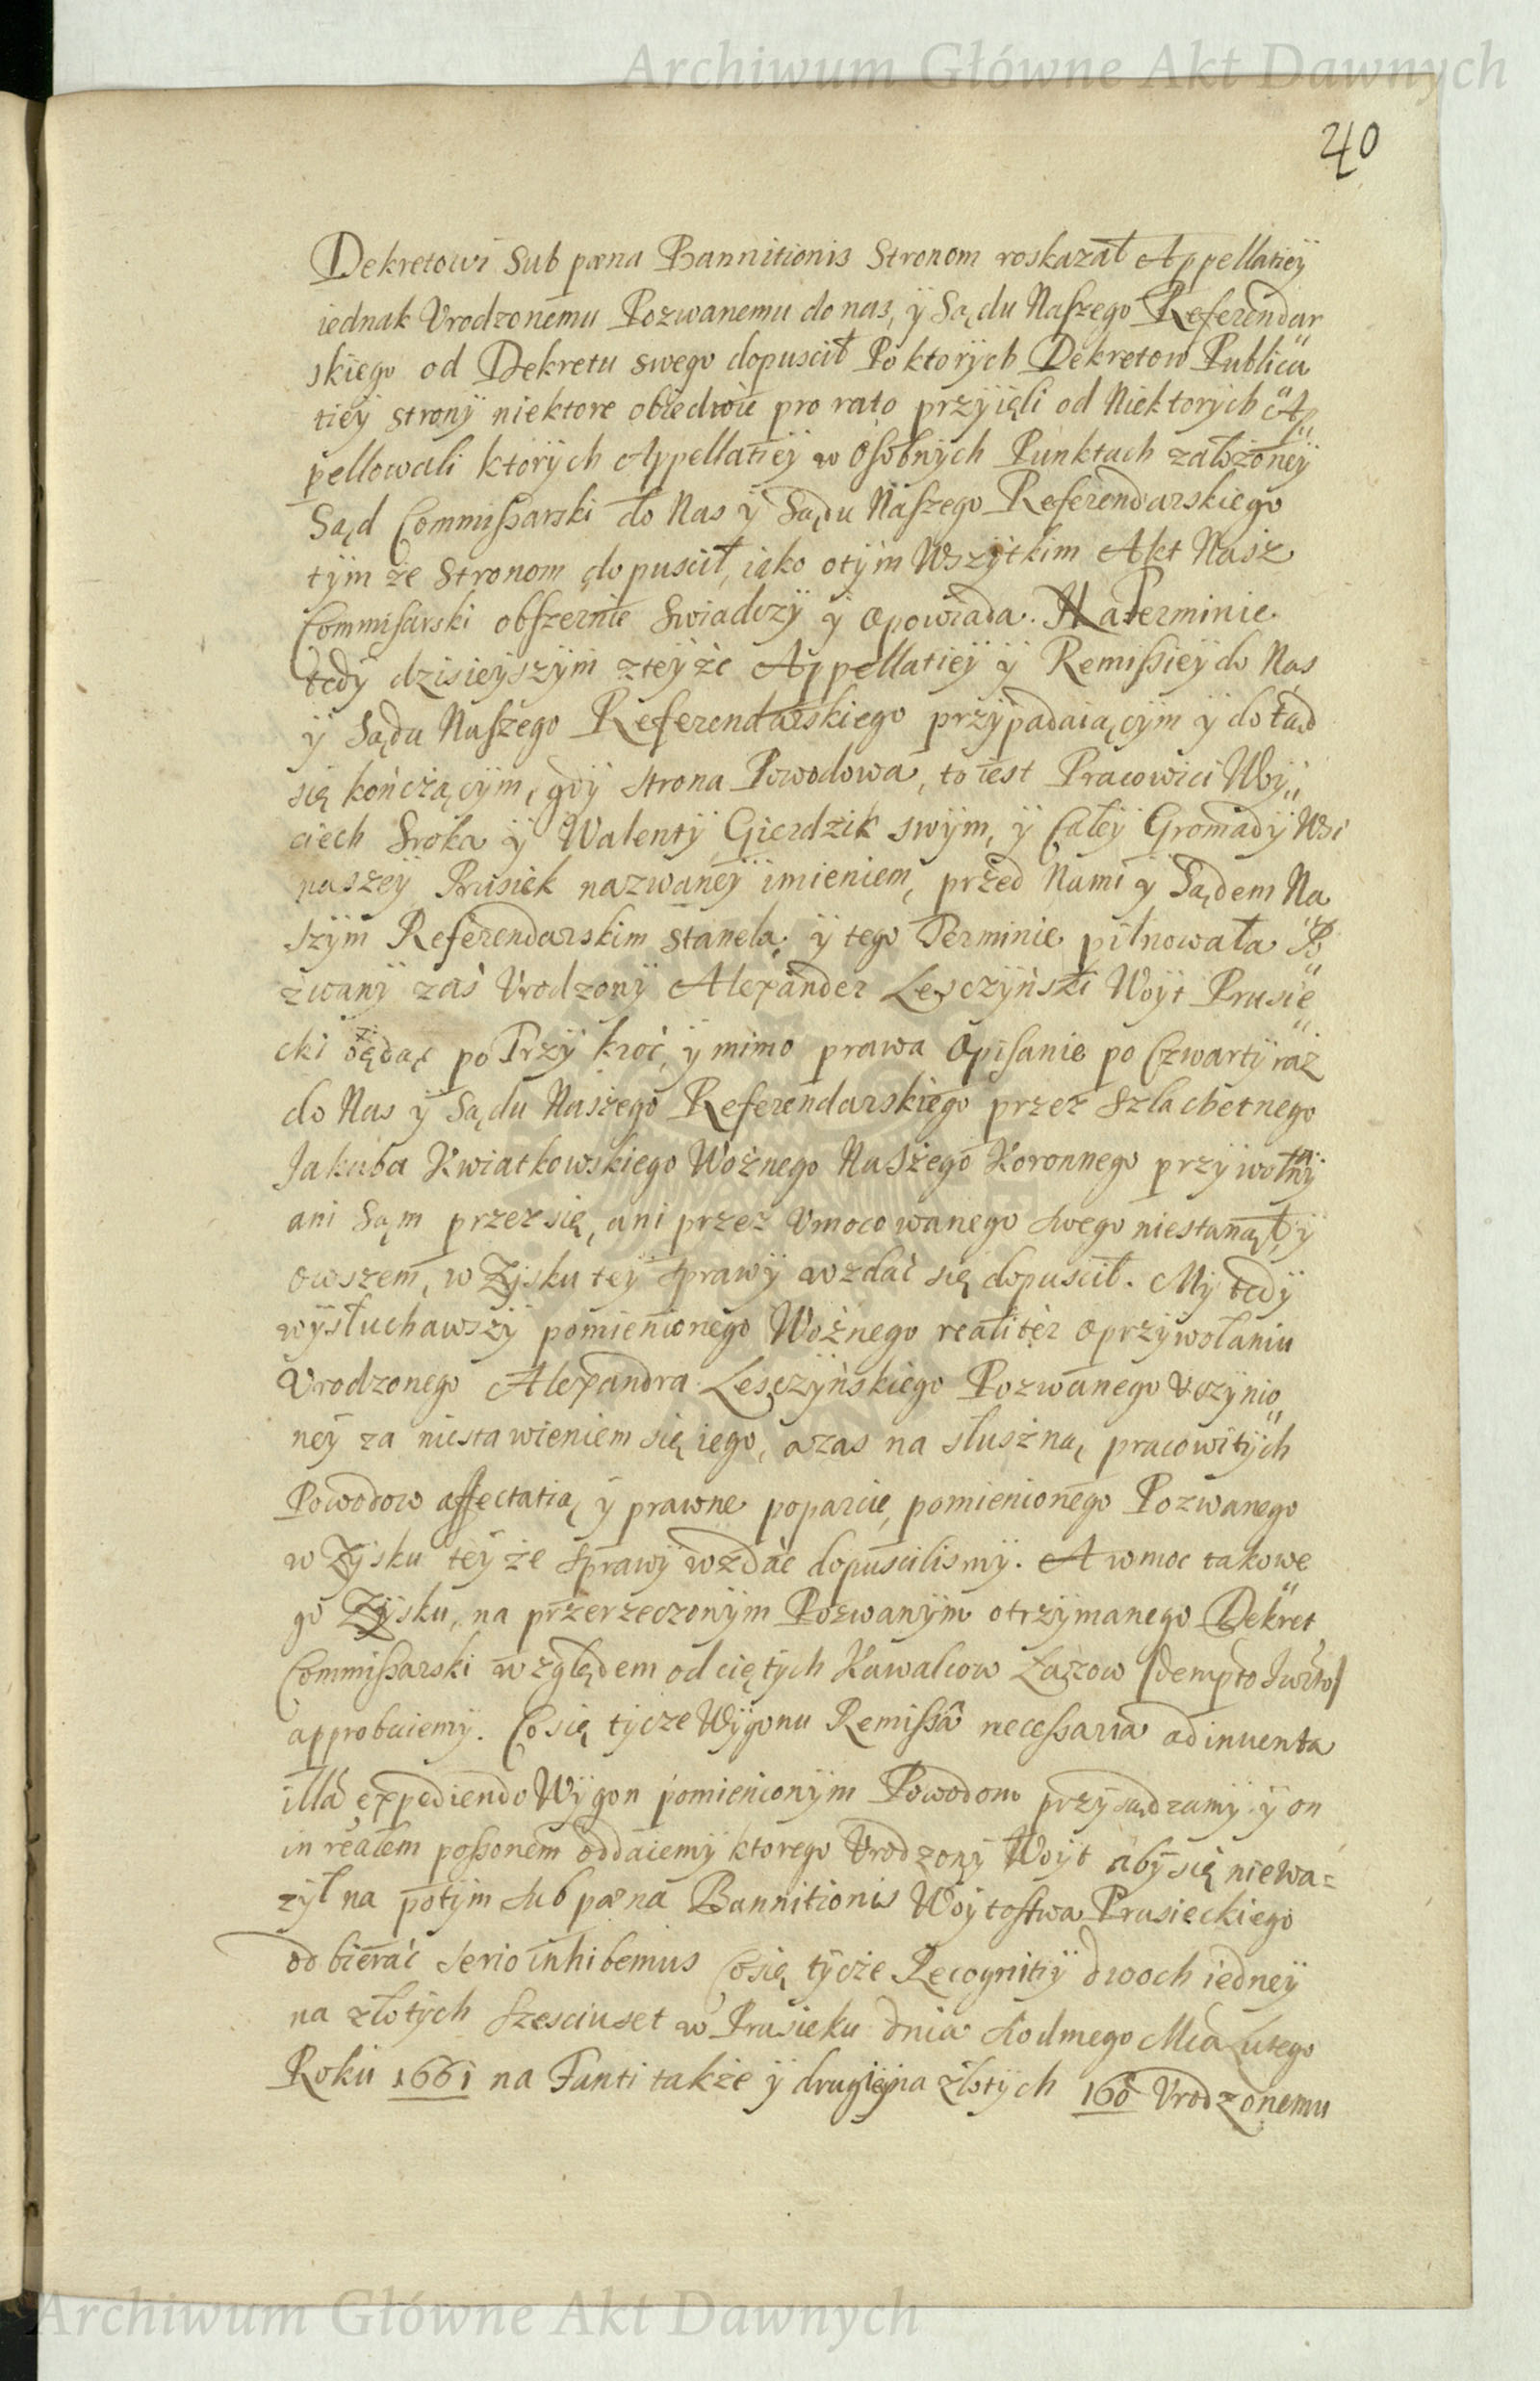 Archiwum Główne Akt Dawnych
40
Dekretowi Sub pœna Bannitionis Stronom roskazał Appellatiey
iednak Vrodzonemu Pozwanemu do nas, ÿ Sądu Naszego Referendar
skiego od Dekretu swego dopuscił Po ktorÿch Dekretow Publica„
tieÿ stronÿ niektore obiedwie pro rato przÿięli od Niektorÿch Ap„
pellowali ktorÿch Appellatieÿ w Osobnÿch Punktach założoneÿ
Sąd Commissarski do Nas ÿ Sądu Naszego Referendarskiego
tÿm że Stronom dopuscił, iako otÿm Wszÿtkim Akt Nasz
Commisarski obszernie Swiadczÿ ÿ opowiada. Na Terminie
tedÿ dzisieÿszÿm zteÿże Appellatieÿ ÿ Remissieÿ do Nas
ÿ Sądu Naszego Referendarskiego przÿpadaiącÿm ÿ do tąd
się kończącÿm, gdÿ strona Powodowa, to iest Pracowici Woÿ„
ciech Sroka ÿ Walentÿ Gierdzik swÿm, ÿ Całeÿ Gromadÿ Wsi
naszeÿ Prusiek nazwaneÿ imieniem, przed Nami ÿ Sądem Na
szÿm Referendarskim stanęła, ÿ tego Terminie pilnowała Po„
zwanÿ zaś Vrodzonÿ Alexander Lesczÿński Woÿt Prusie„
cki będąc po Trzÿ kroć, ÿ mimo prawa Opisanie po Czwartÿ raz
do Nas ÿ Sądu Naszego Referendarskiego przez Szlachetnego
Jakuba Kwiatkowskiego Woźnego Naszego Koronnego przÿwołanÿ
ani Sąm przez się, ani przez Vmocowanego swego niestanął, ÿ
owszem, w Zÿsku teÿ sprawÿ wzdać się dopuscił. Mÿ tedÿ
wÿsłuchawszÿ pomienionego Woźnego realitèr o przÿwołaniu
Vrodzonego Alexandra Lesczÿńskiego Pozwanego Vczÿnio„
neÿ za niestawieniem się iego, azas na słuszną, pracowitÿch
Powodow affectatią ÿ prawne poparcie, pomienionego Pozwanego
w Zÿsku teÿże sprawÿ wzdać dopuscilismÿ. A wmoc takowe„
go Zÿsku, na przerzeczonÿm Pozwanÿm otrzÿmanego Dekret
Commissarski względem odciętÿch Kawalcow Łazow
approbuiemÿ. Co się tÿcze Wÿgonu Remissâ necessaria ad inuenta
illa expediendo Wÿgon pomienionÿm Powodom przÿsądzamÿ ÿ on
in realem possonem oddaiemÿ ktorego Vrodzonÿ Woÿt abÿ się niewa=
żÿł na potÿm sub pœna Bannitionis Woÿtostwa Prusieckiego
odbierać serio inhibemus Co się tÿcze Recognitiÿ dwoch iedneÿ
na złotÿch szesciuset w Prusieku dnia siodmego Mca Lutego
Roku 1661 na Fanti także ÿ drugieÿ na złotÿch 160 Vrodzonemu
Archiwum Główne Akt Dawnych